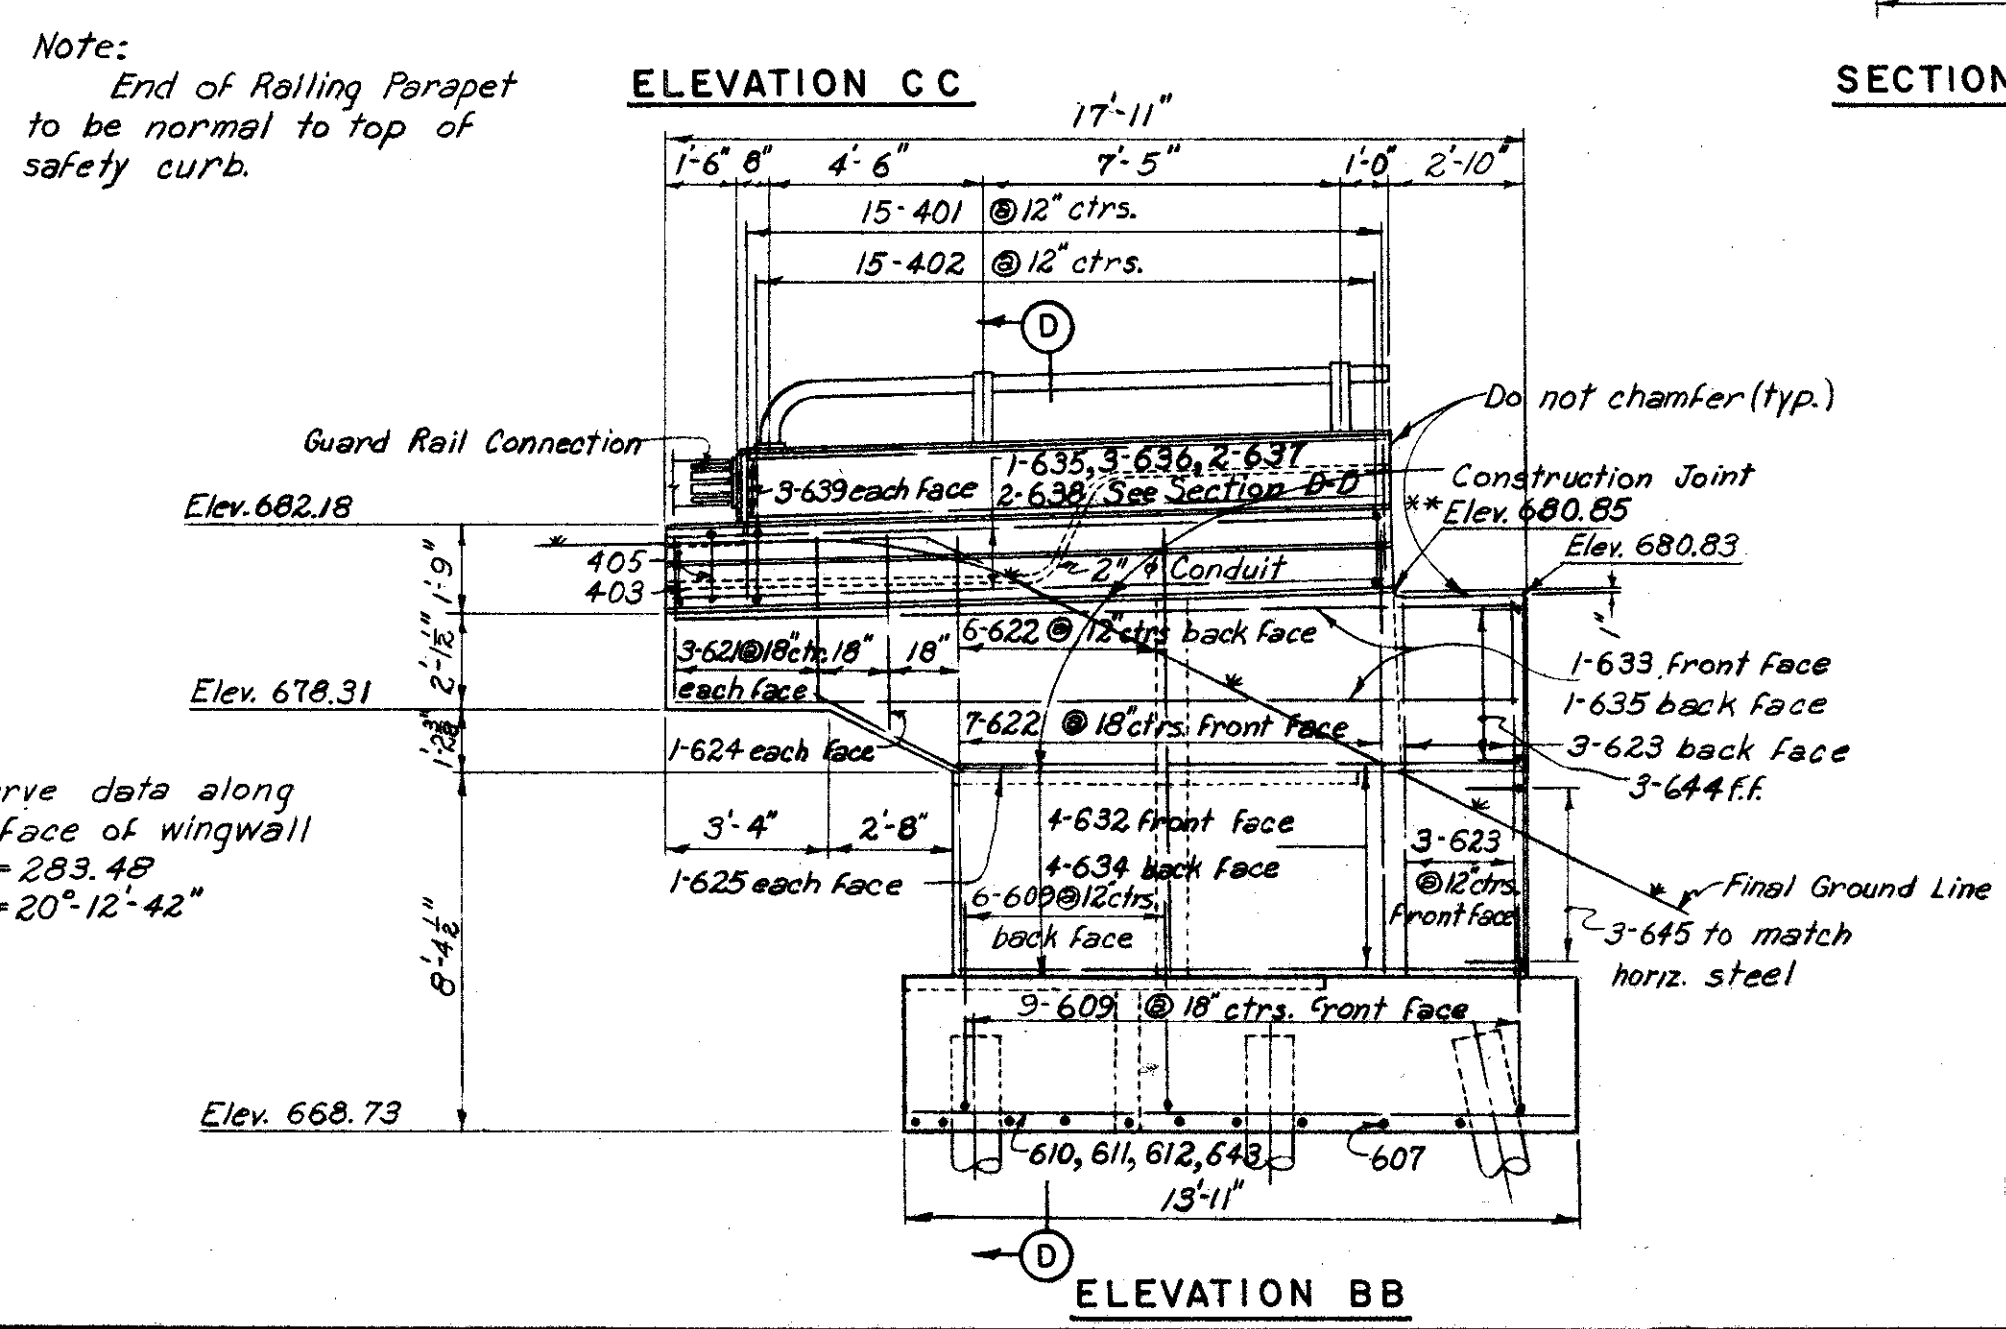 Note:
End of Railing Parapet
to be normal to top of
safety curb.
ELEVATION CC
SECTION
17'-11"
1'-6" 8" 4'-6" 7'-5" 1'-0" 2'-10"
15-401 @ 12" ctrs.
15-402 @ 12" ctrs.
D
Do not chamfer (typ.)
Guard Rail Connection
1-635, 3-636, 2-637
2-638 See Section D-D
3-639 each face
Construction Joint
** Elev. 680.85
Elev. 682.18
Elev. 680.83
405
403
2" φ Conduit
1'-9"
1"
6-622 @ 12" ctrs back face
3-621 @ 18" ctr. 18" 18"
each face
2'-1 1/2"
1-633 front face
1-635 back face
Elev. 678.31
7-622 @ 18" ctrs. front face
3-623 back face
1-624 each face
1'-2 3/8"
3-644 f.f.
rve data along
face of wingwall
= 283.48
= 20°-12'-42"
3'-4" 2'-8"
4-632 front face
4-634 back face
3-623
@ 12" ctrs.
front face
1-625 each face
6-609 @ 12" ctrs.
back face
Final Ground Line
3-645 to match
horiz. steel
8'-4 1/2"
9-609 @ 18" ctrs. front face
Elev. 668.73
610, 611, 612, 643
607
13'-11"
D
ELEVATION BB